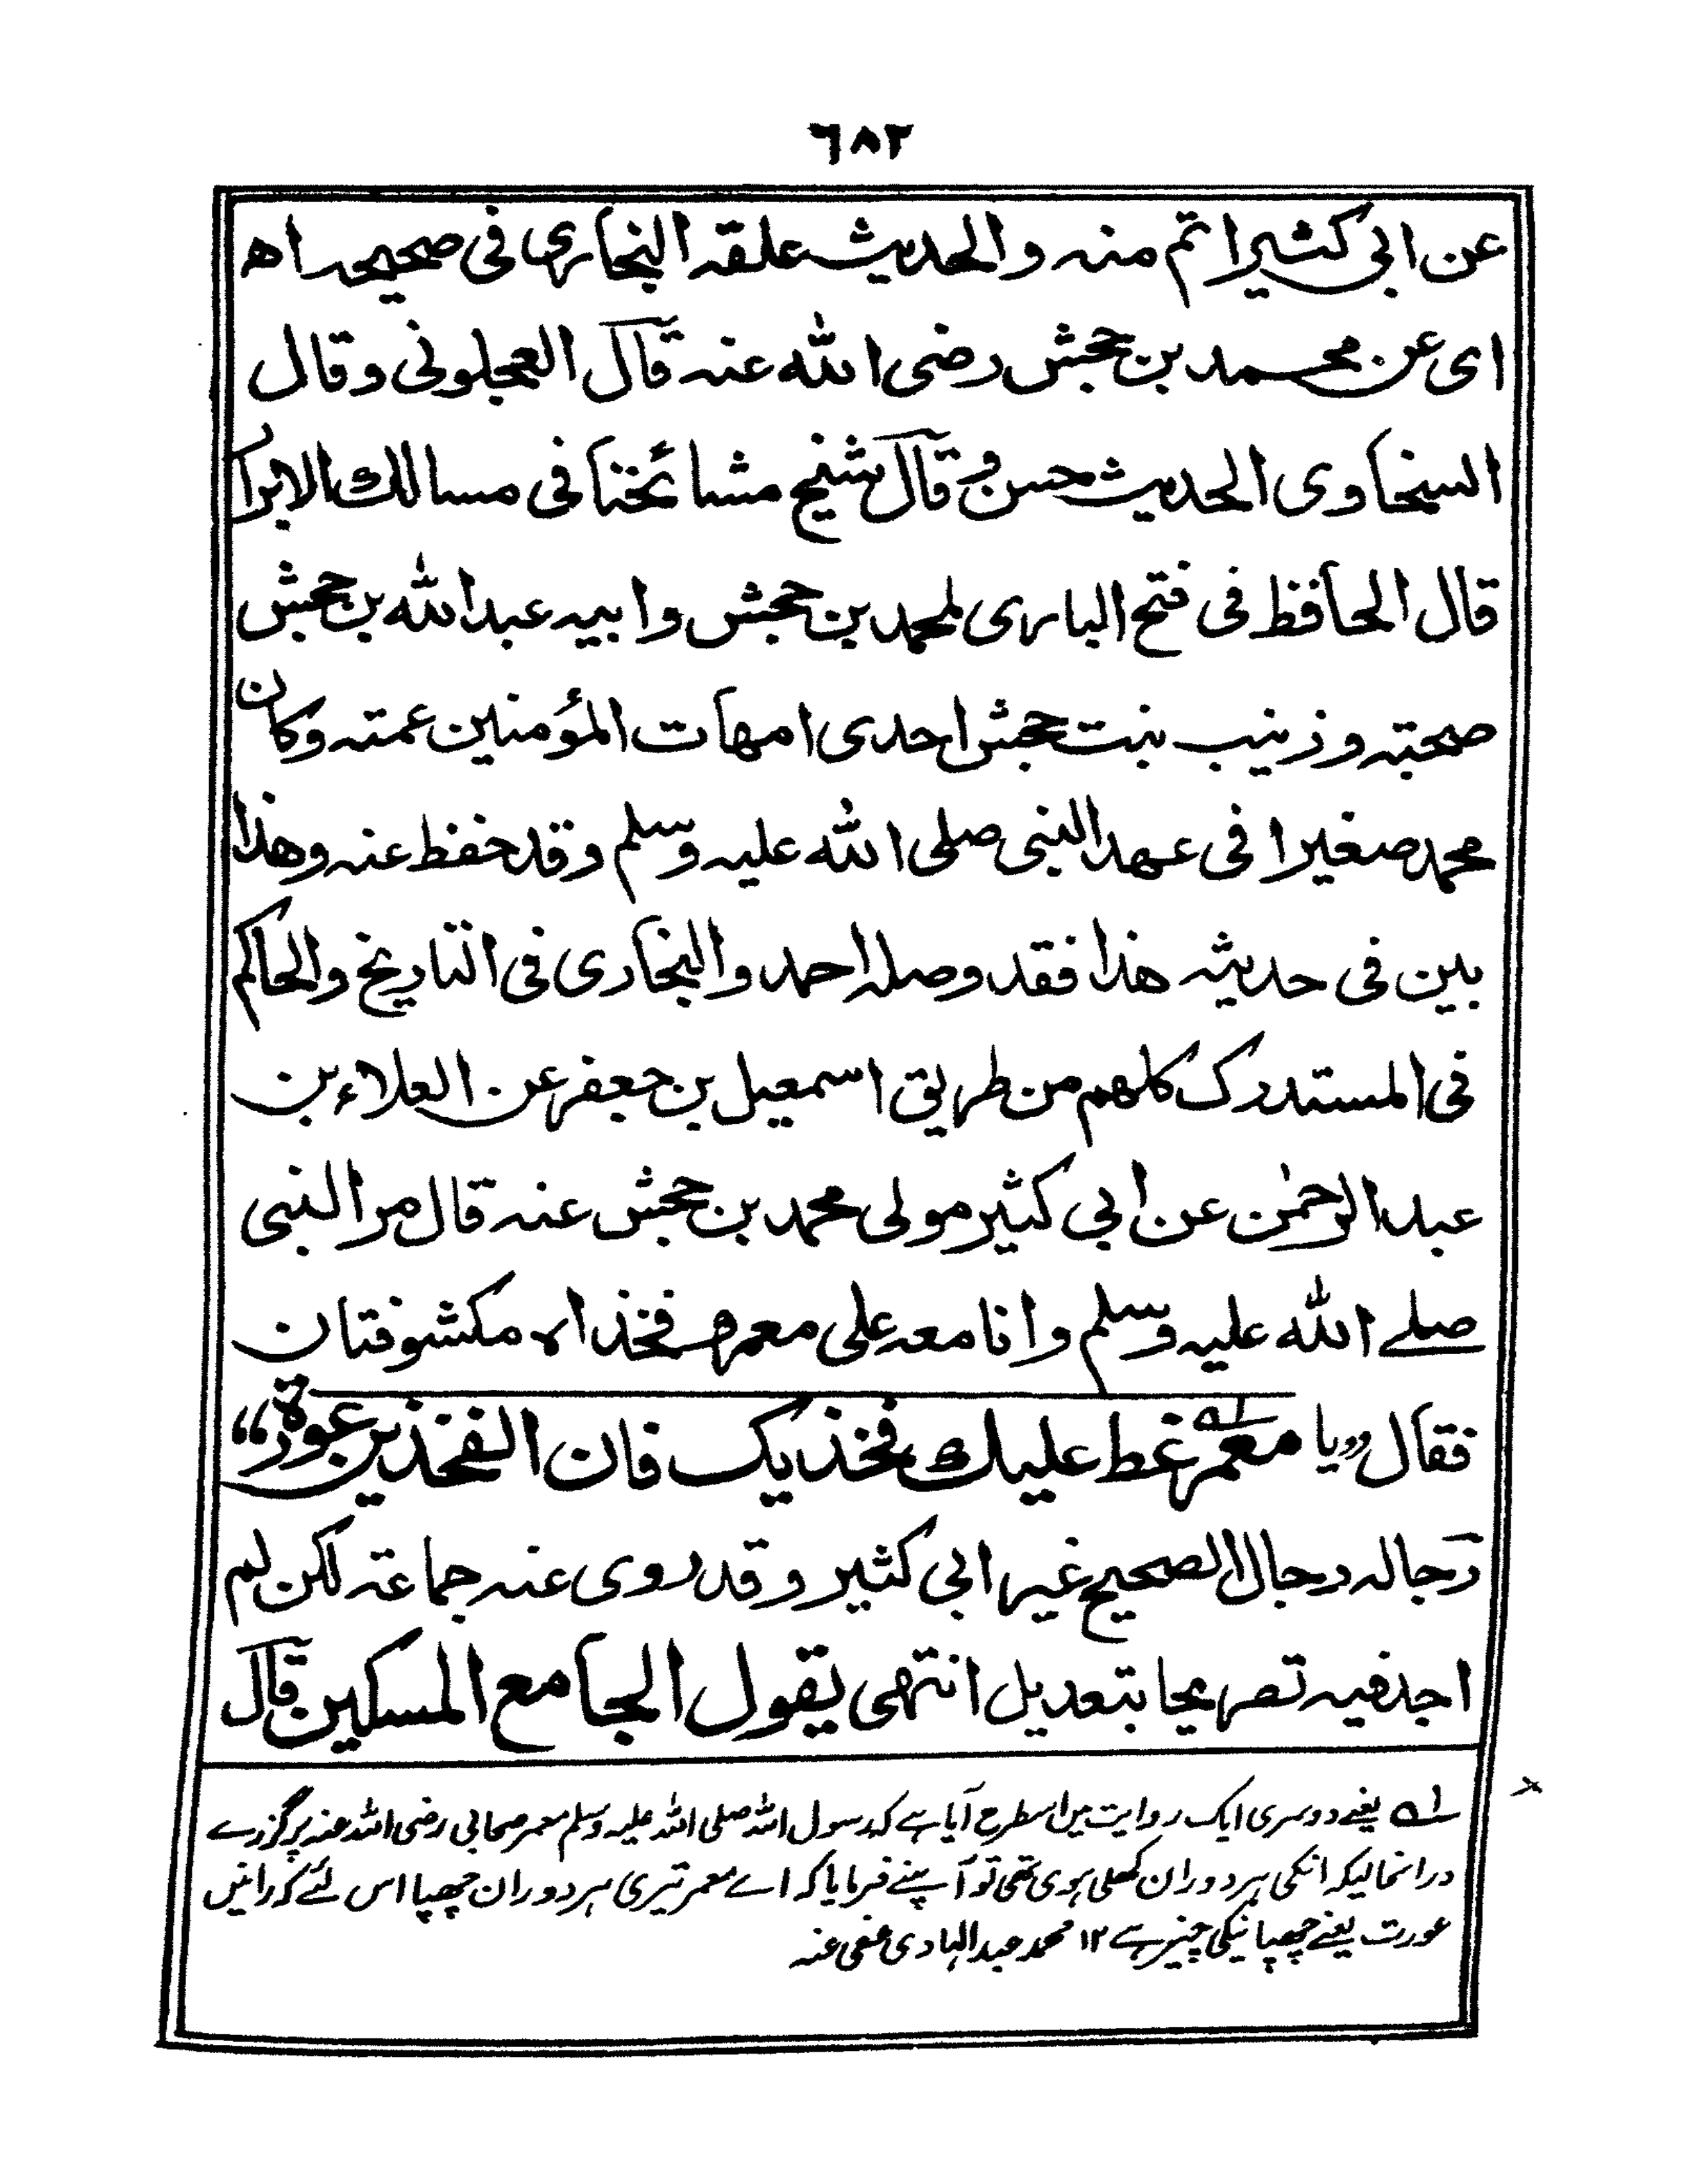 ٦٨٢
عن ابي كثير اتم منه والحديث علقه البخاري في صحيحه اه
اى عن محمد بن جحش رضى الله عنه قال العجلونى وقال
السخاوى الحديث حسن وقال شيخ مشائخنا فى مسالك الابرار
قال الحافظ فى فتح البارى لمحمد بن جحش وابيه عبد الله بن جحش
صحبته وزينب بنت جحش احدى امهات المؤمنين عمته وكان
محمد صغيرا فى عهد النبى صلى الله عليه وسلم وقد حفظ عنه وهذا
بين فى حديثه هذا فقد وصله احمد والبخارى فى التاريخ والحاكم
فى المستدرك كلهم من طريق اسمعيل بن جعفر عن العلاء بن
عبد الرحمٰن عن ابي كثير مولى محمد بن جحش عنه قال مر النبى
صلے الله عليه وسلم وانا معه على معمر وفخذاه مكشوفتان
فقال ”يا معمر ؂۱ غط عليك فخذيك فان الفخذين عورة“
رجاله رجال الصحيح غير ابى كثير وقد روى عنه جماعته لكن لم
اجد فيه تصريحا بتعديل انتهى يقول الجامع المسكين قال
؂۱ یعنے دوسری ایک روایت میں اسطرح آیا ہے کہ رسول اللہ صلی اللہ علیہ وسلم معمر صحابی رضی اللہ عنہ پر گزرے
درانحالیکہ انکی ہر دو ران کھلی ہوی تھی تو آپنے فرمایا کہ اے معمر تیری ہر دو ران چھپا اس لئے کہ رانیں
عورت یعنے چھپانیکی چیز ہے ۱۲ محمد عبد الہادی عفی عنہ